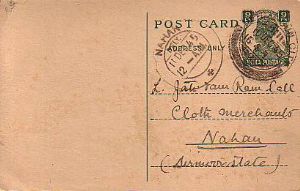 POST CARD
ADDRESS ONLY
NAHAN
11 DE 45
INDIA POSTAGE
L. Jati Ram Lall
Cloth Merchants
Nahan
(Sirmoor State)